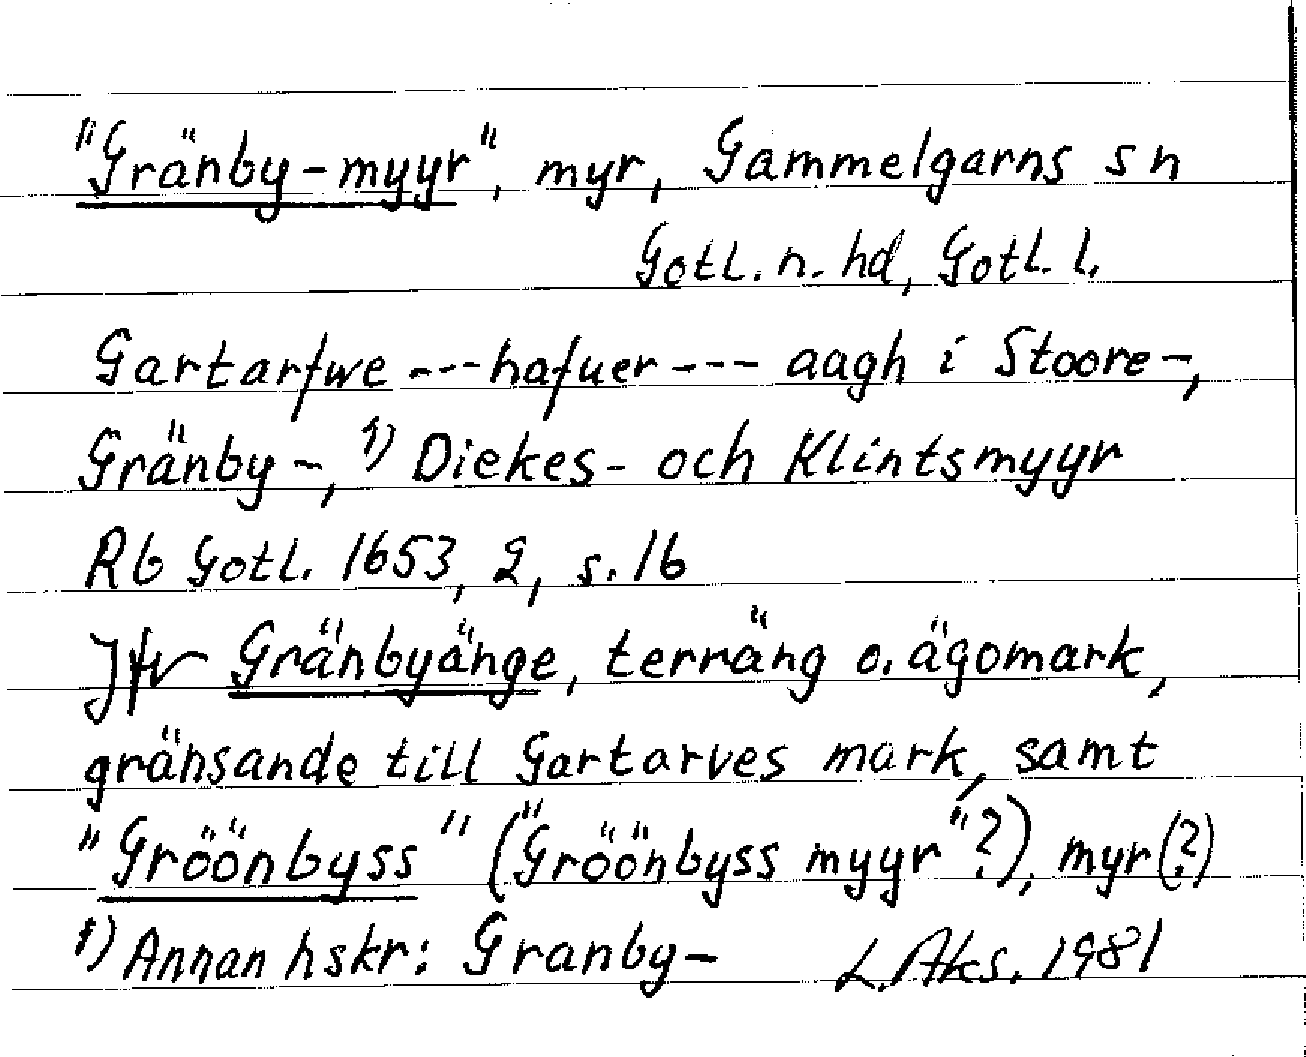 "Gränby-myyr", myr, Gammelgarns sn
Gotl. n. hd, Gotl. l.
Gartarfwe --- hafuer --- aagh i Stoore-,
Gränby-, 1) Diekes- och Klintsmyyr
Rb Gotl. 1653, 2, s. 16
Jfr Gränbyänge, terräng o. ägomark,
gränsande till Gartarves mark, samt
"Gröönbyss" ("Gröönbyss myyr"?), myr (?)
1) Annan hskr: Granby-
L. Aks. 1981